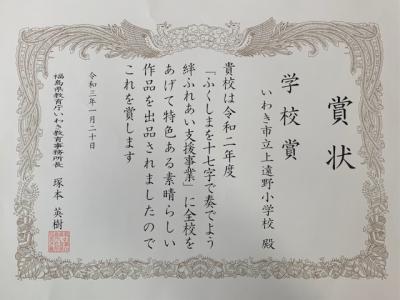 賞状
学校賞
いわき市立上遠野小学校 殿
貴校は令和二年度
「ふくしまを十七字で奏でよう
絆ふれあい支援事業」に全校を
あげて特色ある素晴らしい
作品を出品されましたので
これを賞します
令和三年一月二十日
福島県教育庁いわき教育事務所長 塚本 英樹